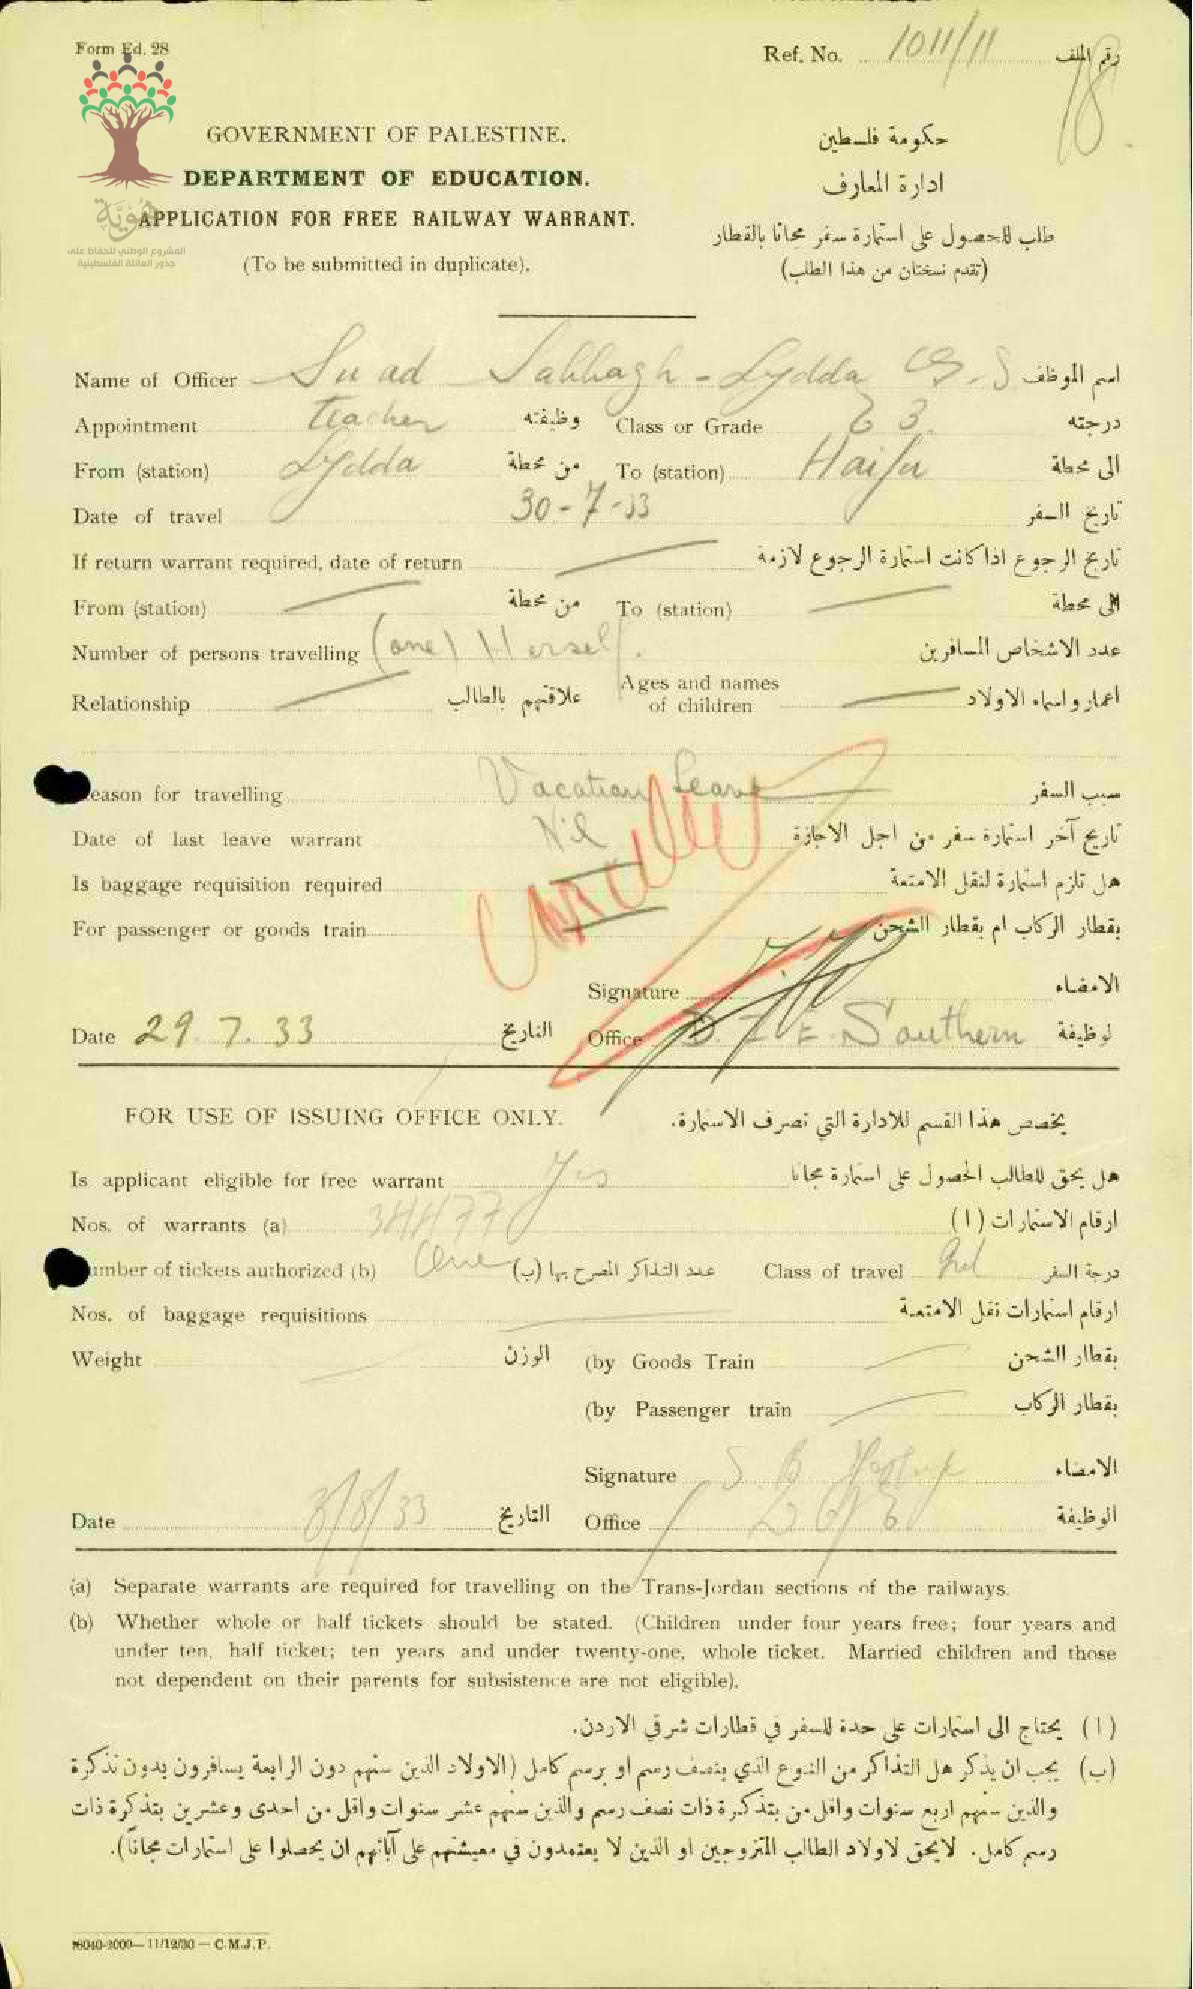 Form Ed. 28
Ref. No. 1011/11 رقم الملف
18
GOVERNMENT OF PALESTINE. حكومة فلسطين
DEPARTMENT OF EDUCATION. ادارة المعارف
APPLICATION FOR FREE RAILWAY WARRANT. طلب للحصول على استمارة سفر مجانا بالقطار
(To be submitted in duplicate). (تقدم نسختان من هذا الطلب)
هُوِيَّة
المشروع الوطني للحفاظ على
جذور العائلة الفلسطينية
Name of Officer Su'ad Sabbagh - Lydda G.S اسم الموظف
Appointment teacher وظيفته Class or Grade 3 درجته
From (station) Lydda من محطة To (station) Haifa الى محطة
Date of travel 30-7-33 تاريخ السفر
If return warrant required, date of return تاريخ الرجوع اذا كانت استمارة الرجوع لازمة
From (station) من محطة To (station) الى محطة
Number of persons travelling (one) Herself. عدد الاشخاص المسافرين
Relationship علاقتهم بالطالب Ages and names of children اعمار واسماء الاولاد
Reason for travelling Vacation Leave سبب السفر
Date of last leave warrant Nil تاريخ آخر استمارة سفر من اجل الاجازة
Is baggage requisition required هل تلزم استمارة لنقل الامتعة
For passenger or goods train بقطار الركاب ام بقطار الشحن
Cancelled
Signature الامضاء
Date 29.7.33 التاريخ Office D.I.E. Southern لوظيفة
FOR USE OF ISSUING OFFICE ONLY. يخصص هذا القسم للادارة التي تصرف الاستمارة.
Is applicant eligible for free warrant Yes هل يحق للطالب الحصول على استمارة مجانا
Nos. of warrants (a) 34477 ارقام الاستمارات (ا)
Number of tickets authorized (b) One عدد التذاكر المصرح بها (ب) Class of travel 2nd درجة السفر
Nos. of baggage requisitions ارقام استمارات نقل الامتعة
Weight الوزن (by Goods Train بقطار الشحن
(by Passenger train بقطار الركاب
Signature الامضاء
Date 3/8/33 التاريخ Office الوظيفة
(a) Separate warrants are required for travelling on the Trans-Jordan sections of the railways.
(b) Whether whole or half tickets should be stated. (Children under four years free; four years and
under ten, half ticket; ten years and under twenty-one, whole ticket. Married children and those
not dependent on their parents for subsistence are not eligible).
(ا) يحتاج الى استمارات على حدة للسفر في قطارات شرقي الاردن.
(ب) يجب ان يذكر هل التذاكر من النوع الذي بنصف رسم او برسم كامل (الاولاد الذين سنهم دون الرابعة يسافرون بدون تذكرة
والذين سنهم اربع سنوات واقل من بتذكرة ذات نصف رسم والذين سنهم عشر سنوات واقل من احدى وعشرين بتذكرة ذات
رسم كامل. لايحق لاولاد الطالب المتزوجين او الذين لا يعتمدون في معيشتهم على آبائهم ان يحصلوا على استمارات مجاناً).
18040-2000—11/12/30 — C.M.J.P.